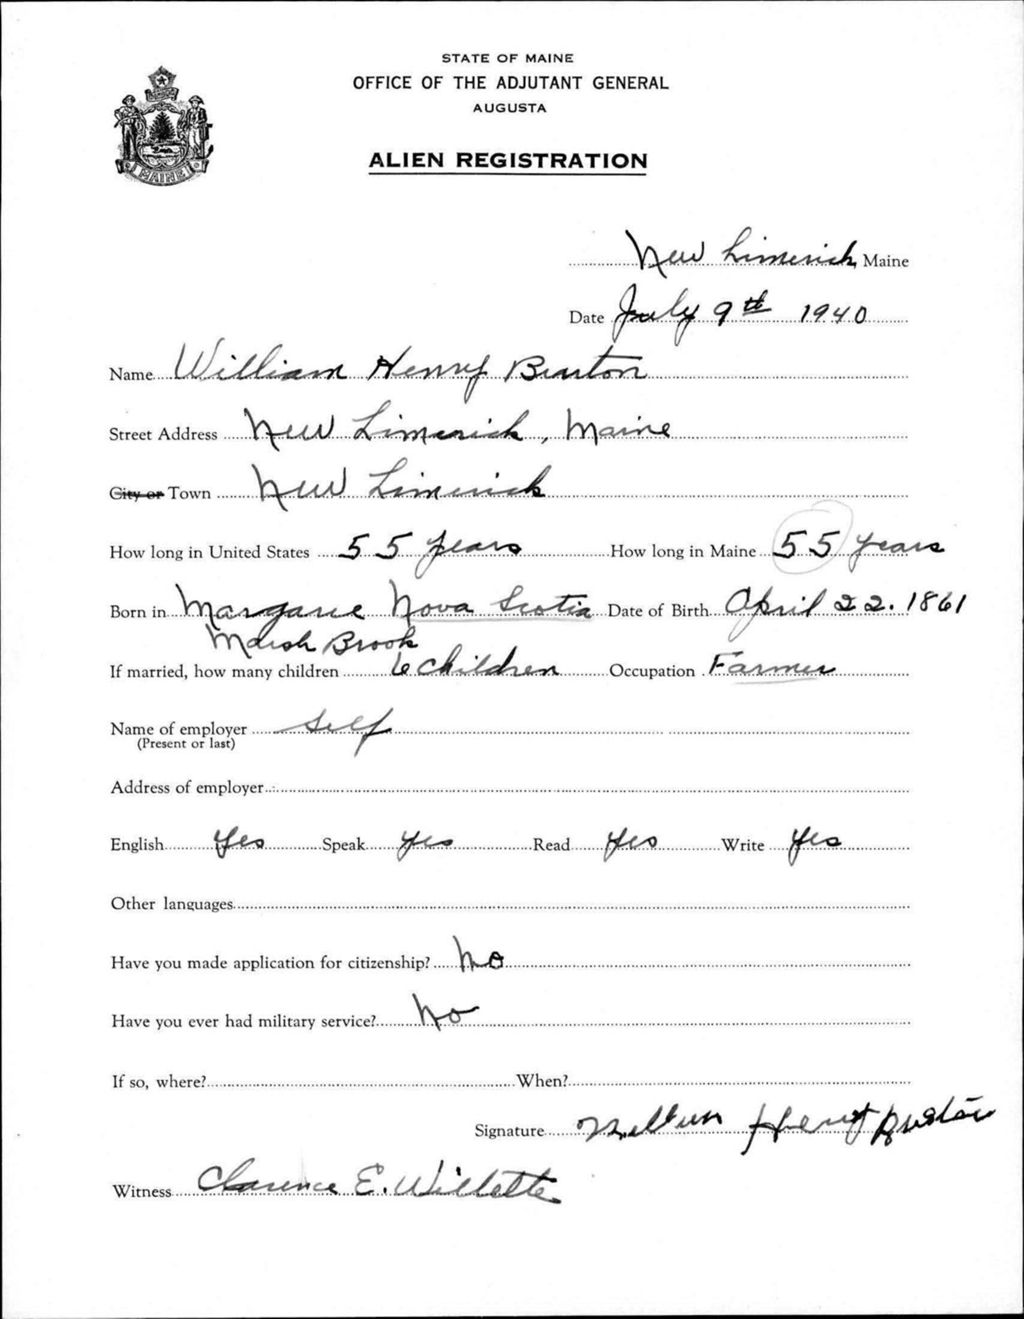 STATE OF MAINE
OFFICE OF THE ADJUTANT GENERAL
AUGUSTA
ALIEN REGISTRATION
MAINE
New Limerick, Maine
Date July 9th 1940
Name William Henry
Street Address New Limerick, Maine
City or Town New Limerick
How long in United States 55 years How long in Maine 55 years
Born in Margarie Nova Scotia Date of Birth April 22. 1861
Marsh Brook
If married, how many children 6 children Occupation Farmer
Name of employer Self
(Present or last)
Address of employer
English Yes Speak Yes Read Yes Write Yes
Other languages
Have you made application for citizenship? No
Have you ever had military service? No
If so, where? When?
Signature Henry
Witness Clarence E. Willette